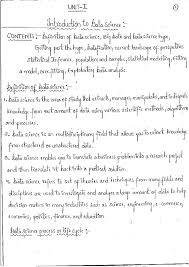 UNIT-I
①
Introduction to Data Science:-
CONTENTS:- Definition of data science, Big data and Data science hype,
Getting past the hype, Datafication, current landscape of perspective
Statistical Inference, population and samples, statistical modelling, fitting
a model, over fitting, Exploratory data analysis.
Definition of Data science:-
Data science is the area of study that extracts, manages, manipulates, and interprets
knowledge from vast amount of data using various scientific methods, algorithms
and processes.
Data science is an multidisciplinary field that allows you to extract knowledge
from structured or unstructured data.
Data science enables you to translate a business problem into a research project
and then translate it back into a practical solution.
Data science refers to set of theories and techniques from many fields and
disciplines are used to investigate and analyze a large amount of data to help
decision makers in many industries such as science, engineering,
economics, politics, finance, and education
Data science process or life cycle:-